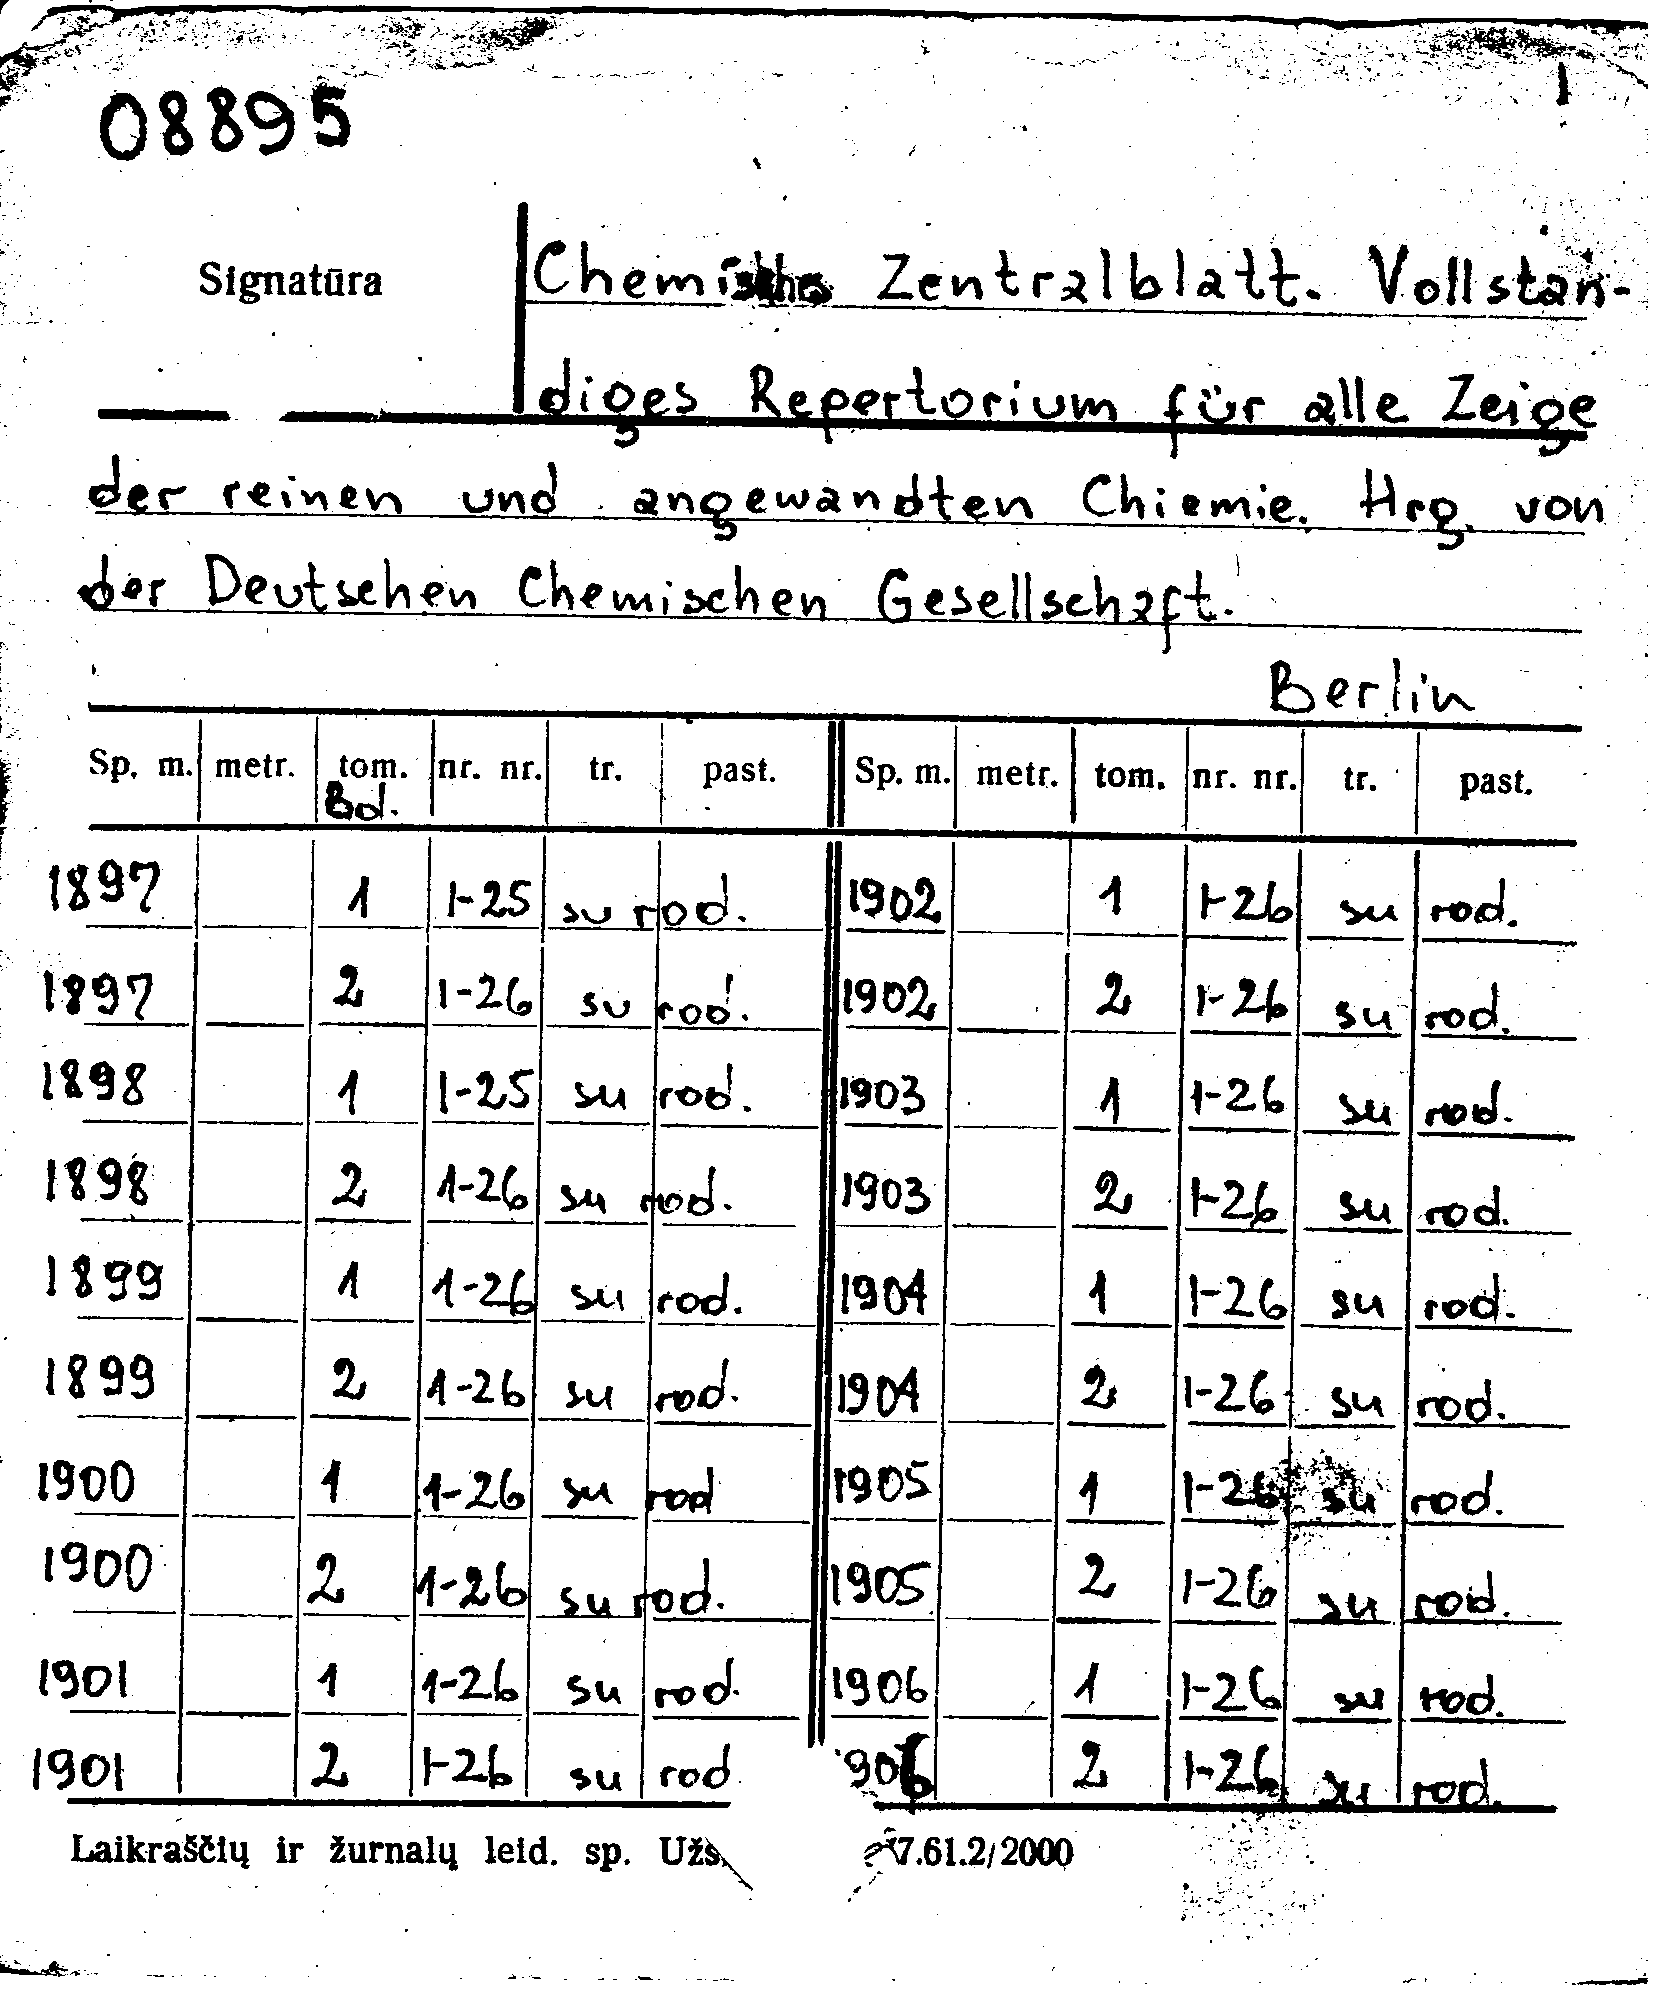 08895
Signatūra
Chemisches Zentralblatt. Vollstan-
diges Repertorium für alle Zeige
der reinen und angewandten Chiemie. Hrg. von
der Deutschen Chemischen Gesellschaft.
Berlin
Sp. m. metr. tom. nr. nr. tr. past. Sp. m. metr. tom. nr. nr. tr. past.
Bd.
1897 1 1-25 su rod. 1902 1 1-26 su rod.
1897 2 1-26 su rod. 1902 2 1-26 su rod.
1898 1 1-25 su rod. 1903 1 1-26 su rod.
1898 2 1-26 su rod. 1903 2 1-26 su rod.
1899 1 1-26 su rod. 1904 1 1-26 su rod.
1899 2 1-26 su rod. 1904 2 1-26 su rod.
1900 1 1-26 su rod 1905 1 1-26 su rod.
1900 2 1-26 su rod. 1905 2 1-26 su rod.
1901 1 1-26 su rod. 1906 1 1-26 su rod.
1901 2 1-26 su rod 906 2 1-26 su rod.
Laikraščių ir žurnalų leid. sp. Užs. 7.61.2/2000